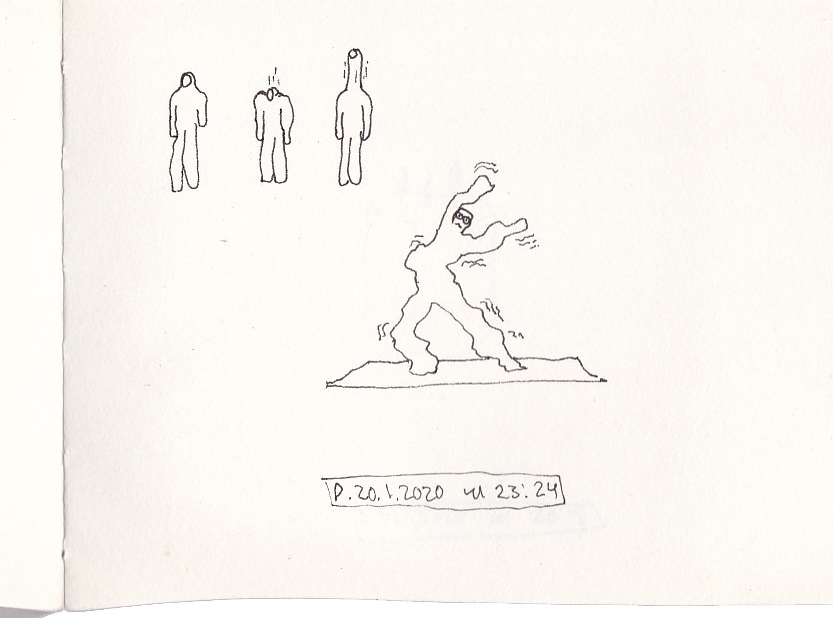 P.20.1.2020 23:24